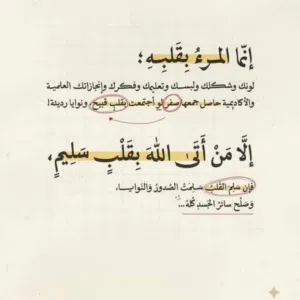 إنَّمَا المَرءُ بِقَلبِهِ؛
لونك وشكلك ولبسك وتعليمك وفكرك وإنجازاتك العلمية
والأكاديمية حاصل جمعها صفر لو اجتمعت بقلب قبيح، ونوايا رديئة!
إلَّا مَنْ أَتَى اللهَ بِقَلْبٍ سَلِيمٍ،
فإن سَلِمَ القَلبُ سَلِمَتْ الصدورُ وَالنَّوايـا،
وَصَلُح سائرُ الجَسدِ كُلُّهُ...